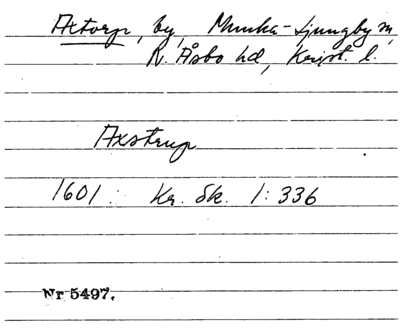 Axtorp, by, Munka-Ljungby sn,
N. Åsbo hd, Krist. l.
Axstrup
1601: Kr. Sk. 1:336
Nr 5497.